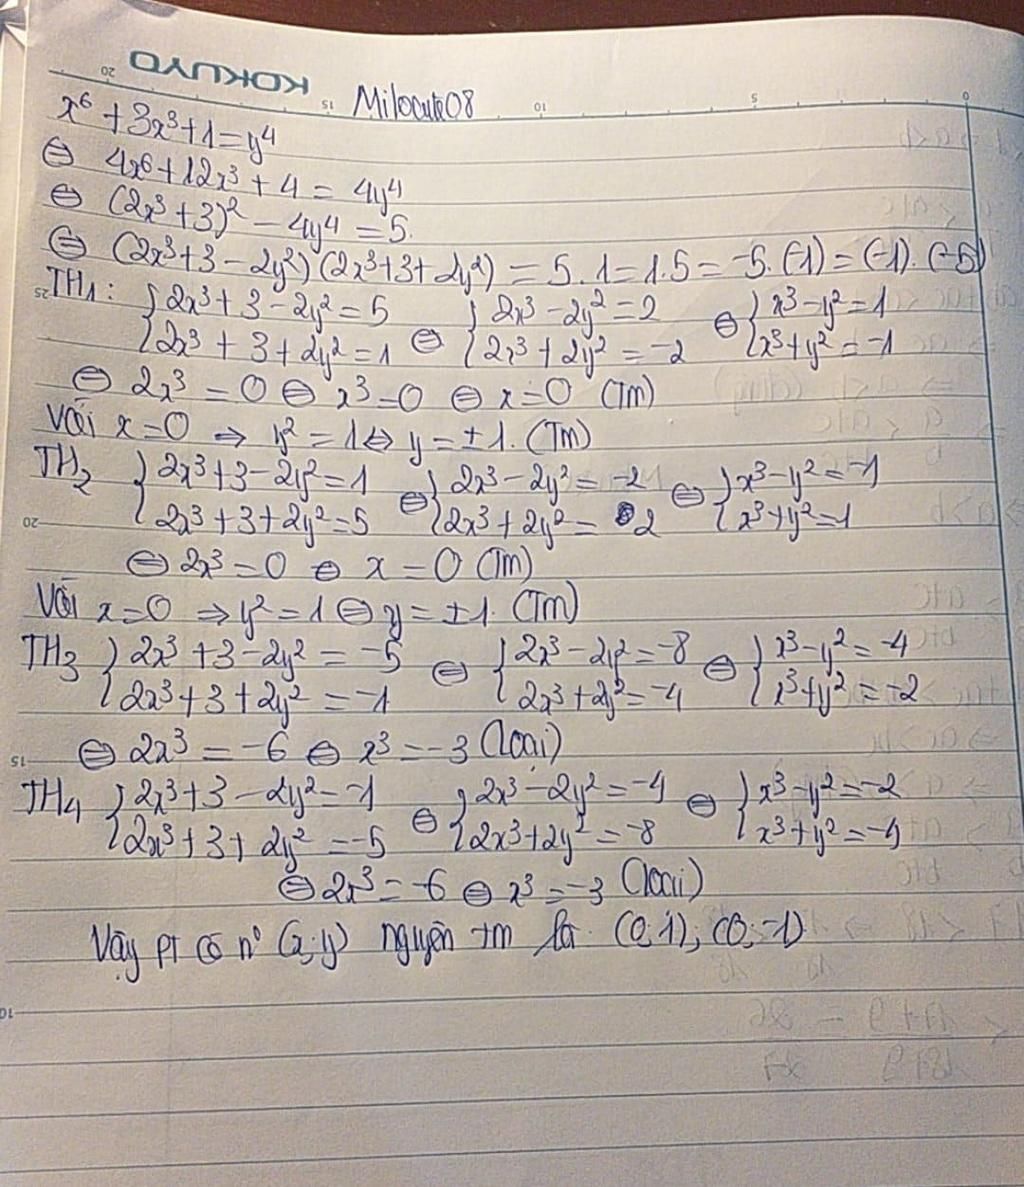 KOKUYO
20 15 10 5 0
Milocute08
x⁶ + 3x³ + 1 = y⁴
⇔ 4x⁶ + 12x³ + 4 = 4y⁴
⇔ (2x³ + 3)² - 4y⁴ = 5.
⇔ (2x³ + 3 - 2y²)(2x³ + 3 + 2y²) = 5.1 = 1.5 = -5.(-1) = (-1).(-5)
25
TH₁: { 2x³ + 3 - 2y² = 5 ⇔ { 2x³ - 2y² = 2 ⇔ { x³ - y² = 1
{ 2x³ + 3 + 2y² = 1 { 2x³ + 2y² = -2 { x³ + y² = -1
⇔ 2x³ = 0 ⇔ x³ = 0 ⇔ x = 0 (Tm)
Với x = 0 ⇒ y² = 1 ⇔ y = ±1. (Tm)
TH₂ { 2x³ + 3 - 2y² = 1 ⇔ { 2x³ - 2y² = -2 ⇔ { x³ - y² = -1
{ 2x³ + 3 + 2y² = 5 { 2x³ + 2y² = 2 { x³ + y² = 1
20
⇔ 2x³ = 0 ⇔ x = 0 (Tm)
Với x = 0 ⇒ y² = 1 ⇔ y = ±1. (Tm)
TH₃ { 2x³ + 3 - 2y² = -5 ⇔ { 2x³ - 2y² = -8 ⇔ { x³ - y² = -4
{ 2x³ + 3 + 2y² = -1 { 2x³ + 2y² = -4 { x³ + y² = -2
15
⇔ 2x³ = -6 ⇔ x³ = -3 (loại)
TH₄ { 2x³ + 3 - 2y² = -1 ⇔ { 2x³ - 2y² = -4 ⇔ { x³ - y² = -2
{ 2x³ + 3 + 2y² = -5 { 2x³ + 2y² = -8 { x³ + y² = -4
⇔ 2x³ = -6 ⇔ x³ = -3 (loại)
Vậy pt có n° (x;y) nguyên tm là (0;1); (0;-1)
10